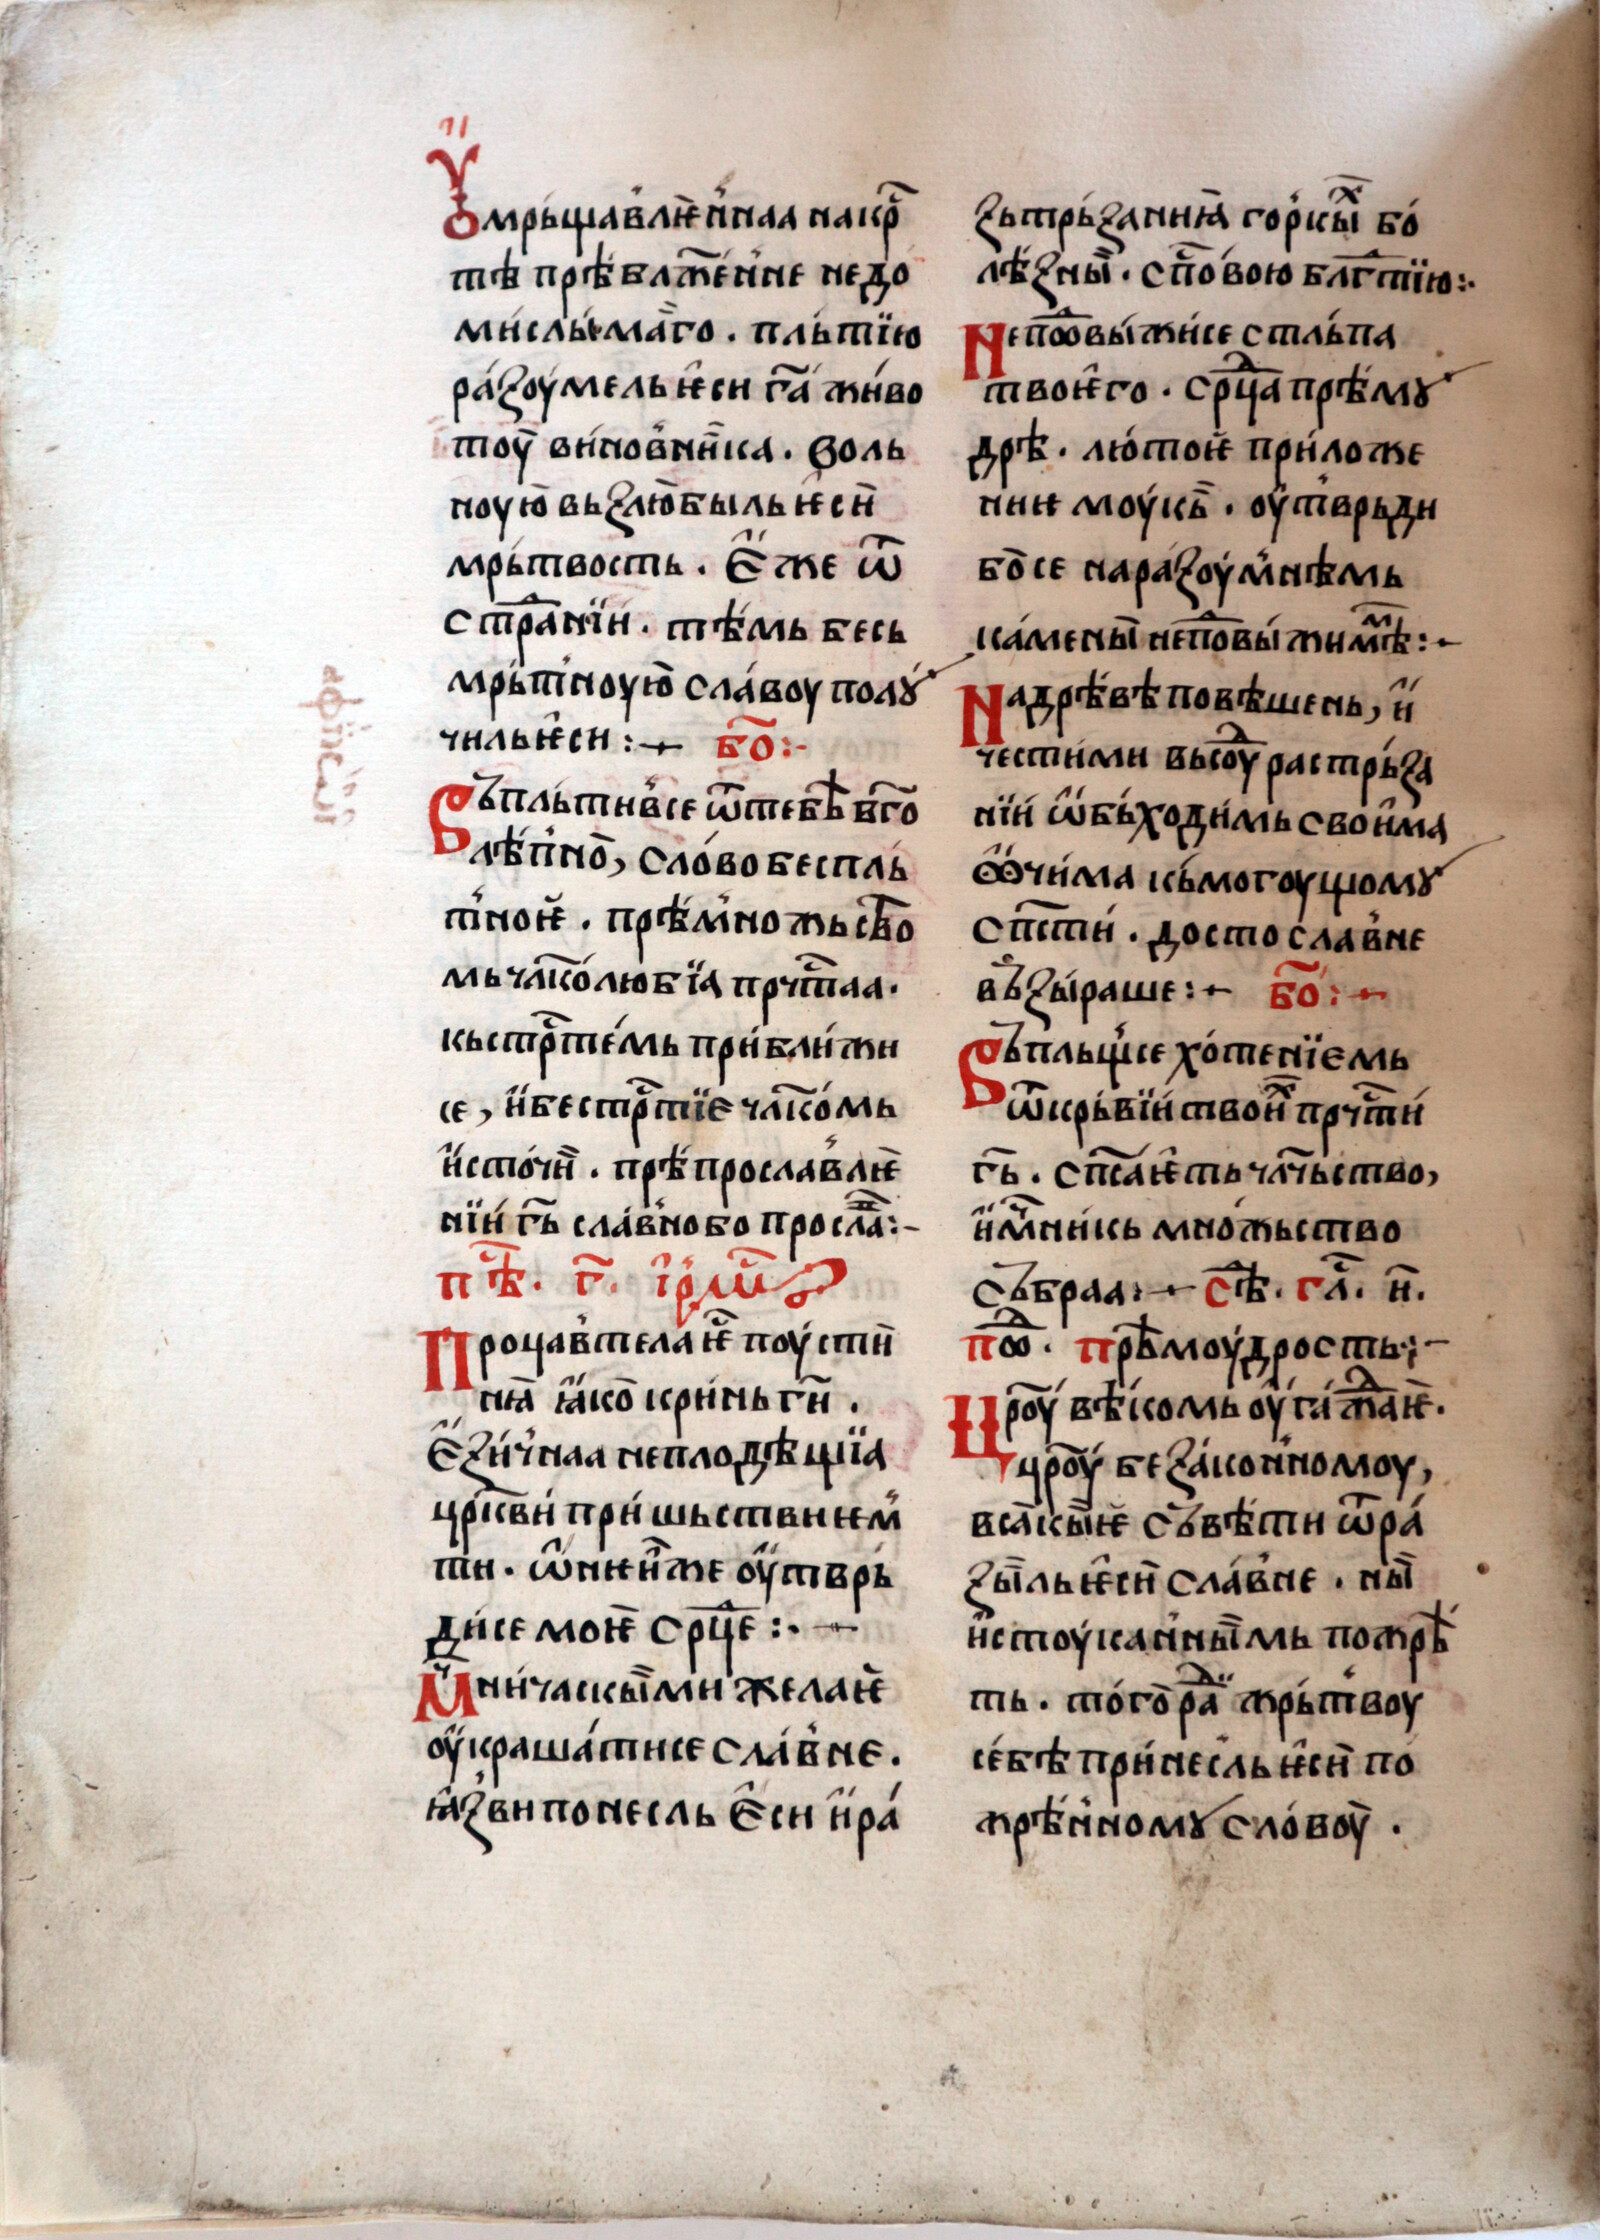 Ꙋмрьщавлѥ́ннаа накрⷭ҇
тѣ прѣблаж҇е́нне недо
ми́слы́ма̀го . пль́тїю
ра́ꙁоу́мель ѥ҆си га҃ жи́во
тоу̀ ви́новни̋ка . Воль
ноую̀ вьꙁлю̀быль ѥсѝ
мрь́твость . Е҆же ѿ
стра́нїи́ . тѣ́мь бесь
мрь́тноую̀ сла́воу полꙋ
чиль ѥ҆си :~ бо҃ :~
Бъпль́тив̾се ѿтебѣ̀ бг҃о
лѣ́пно̀, сло́во беспль́
тноѥ̀ . прѣ́мно жьст҃во
мь чл҃ко́любїа прчⷭ҇таа .
кьстрⷭ҇те́мь при́бли́жи
се , и҆бестрⷭ҇тїе чл҃ко́мь
и҆сто́чѝ . прѣ́прославлѥ̀
нїи́ гь҃ сла́вно бо просла :~
пѣⷭ҇ . г҃ . і҆рмѡ
Процав́тела ѥⷭ҇ поу́сти̋
ниꙗ̀ ꙗ҆ко̀ кри́нь ги҃ .
Е҆ꙁи́чнаа неплоде́щїа
цр҃кви́ при́шьствиѥм̾
ти . ѡ҆ниѥ́иже оу҆твръ́
ди́се моѥ̀ срⷣце :· ~
Мни́часкы̏ми желаѥ̀
оу҆краша́тисе сла́вне .
ꙗ҆́ꙁви понесль Е҆си и҆ра́
ꙁьтрьꙁаниꙗ̀ го́ркы̏х бо́
лѣ́ꙁны̏ . спⷣо́вою блгⷣтїю :·
Непоⷣвы́жи́се стль́па
твоѥ҆го . срⷣца прѣ́мꙋ
дрѣ . лю́тоѥ при́ложе
ниѥ моу́кь̀ . оу҆твръди
бо̀се нара́ꙁоу́мнѣмь
ка́мены̏ непоⷣвы́жимѣⷨ :~
Надрѣ́вѣ повѣшень, и҆
чести́ми вьсоуⷣ растрь́ꙁа
нїи́ ѡ҆бьхо́димь свои҆ма
ѻ҆чи́ма кь́могоущомꙋ
сп҃сти́ . достославне
въꙁы́раше :~ бо҃ :~
Бъпльщ҇се хо́тенїемь
ѿкрь́вїи́ твоиⷯ прчⷭ҇ти
гь҃ . сп҃саѥ҆ть чл҃чьство,
и҆мⷨни́кь мно́жьство
събраа :~ сѣⷣ . гл҃ . и҃ .
поⷣ . прѣ̀моу́дрость :~
Цр҃оу́ вѣ́комь оу҆га́жⷣаѥ .
цр҃оу́ беꙁа́конномоу,
вса̀кы̏ѥ съвѣ́ти ѿра́
ꙁы̏ль ѥ҆сѝ сла́вне . ны̏
и҆стоу́канны̏мь пожрѣ̀
ть . то́го̀ раⷣ жрь́твоу
се́бѣ при́несль ѥ҆сѝ по
жрѣ́нномꙋ сло́воу̀ .